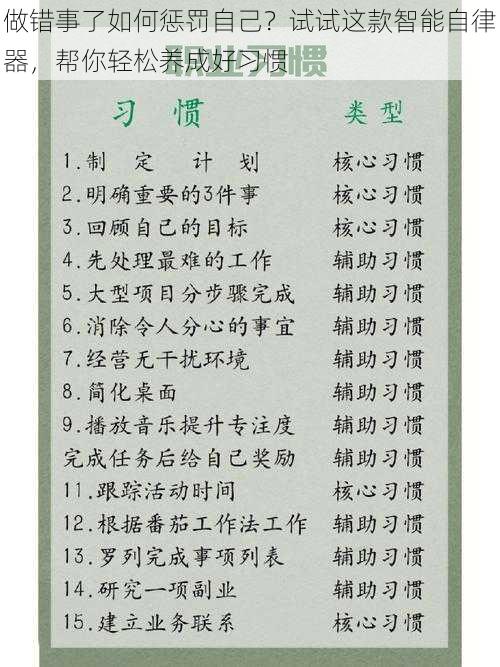 做错事了如何惩罚自己？试试这款智能自律
器，帮你轻松养成好习惯
职业习惯
习 惯 类 型
1.制 定 计 划 核心习惯
2.明确重要的3件事 核心习惯
3.回顾自己的目标 核心习惯
4.先处理最难的工作 辅助习惯
5.大型项目分步骤完成 辅助习惯
6.消除令人分心的事宜 辅助习惯
7.经营无干扰环境 辅助习惯
8.简化桌面 辅助习惯
9.播放音乐提升专注度 辅助习惯
完成任务后给自己奖励 辅助习惯
11.跟踪活动时间 核心习惯
12.根据番茄工作法工作 辅助习惯
13.罗列完成事项列表 辅助习惯
14.研究一项副业 辅助习惯
15.建立业务联系 核心习惯